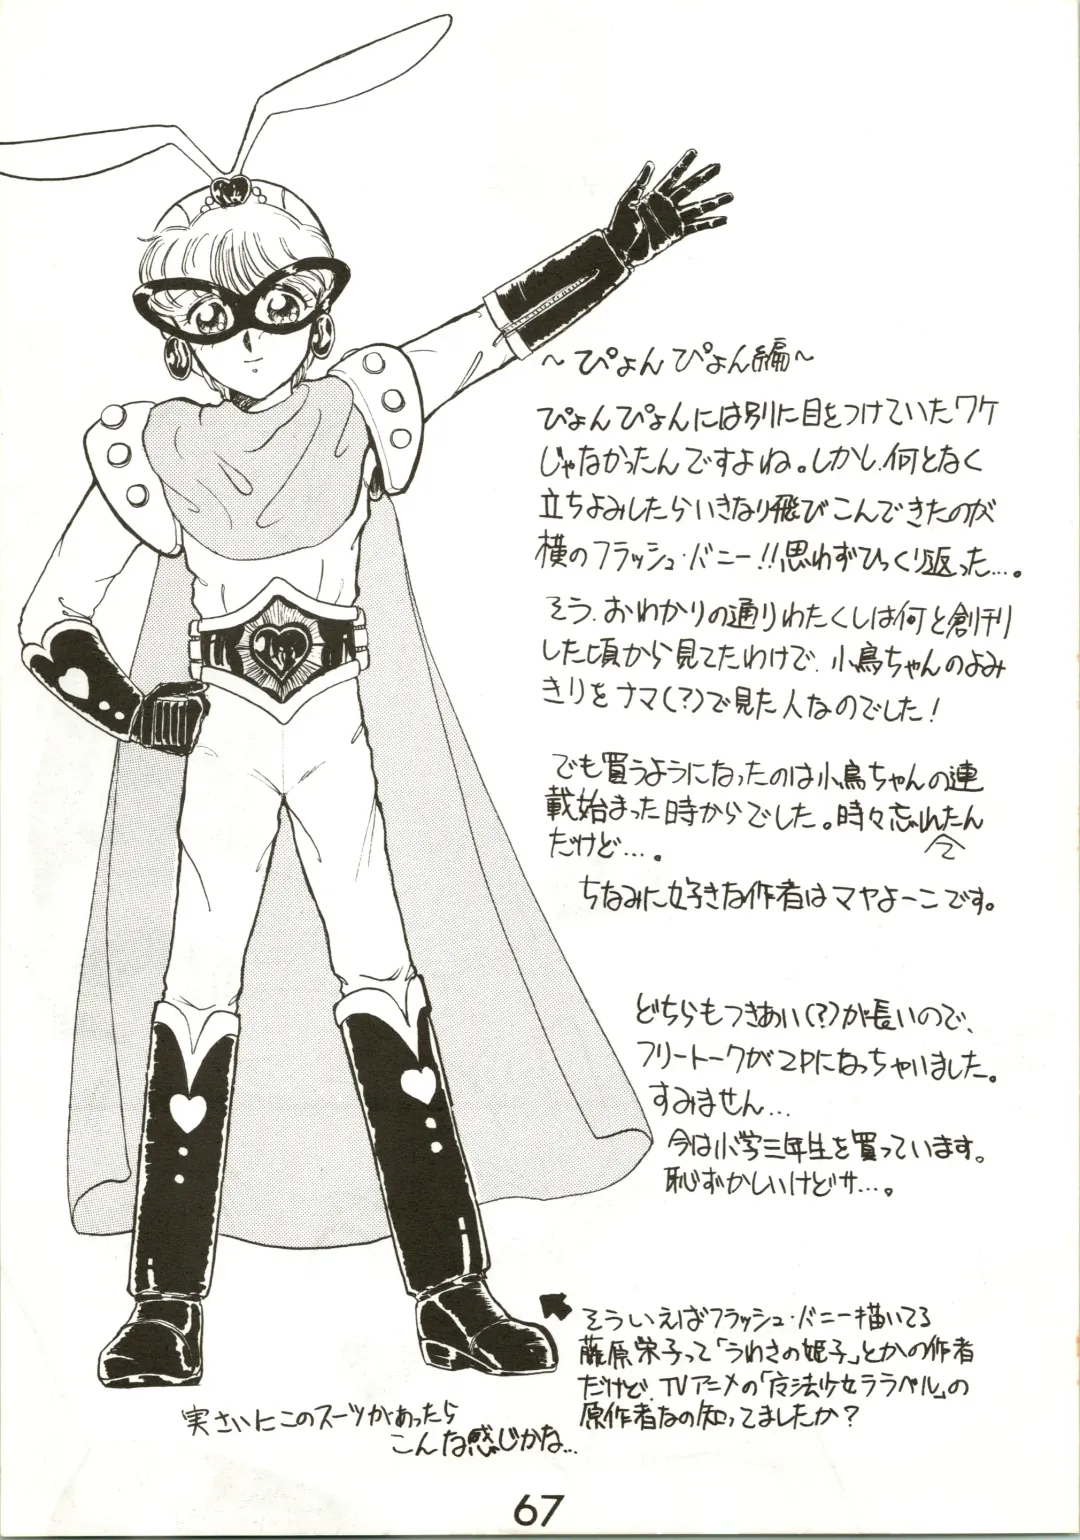 ～ぴょんぴょん編～
ぴょんぴょんには別に目をつけていたワケ
じゃなかったんですよね。しかし、何となく
立ちよみしたらいきなり飛びこんできたのが
横のフラッシュ・バニー!!思わずひっくり返った…。
そう、おわかりの通りわたくしは何と創刊
した頃から見てたわけで、小鳥ちゃんのよみ
きりをナマ(？)で見た人なのでした！
でも買うようになったのは小鳥ちゃんの連
載始まった時からでした。時々忘れたん
だけど…。
ちなみに好きな作者はマヤよーこです。
どちらもつきあい(？)が長いので、
フリートークが2Pになっちゃいました。
すみません…
今は小学三年生を買っています。
恥ずかしいけどサ…。
そういえばフラッシュ・バニー描いてる
藤原栄子って「うわさの姫子」とかの作者
だけど、TVアニメの「魔法少女ララベル」の
原作者なの知ってましたか？
実さいにこのスーツがあったら
こんな感じかな…
67